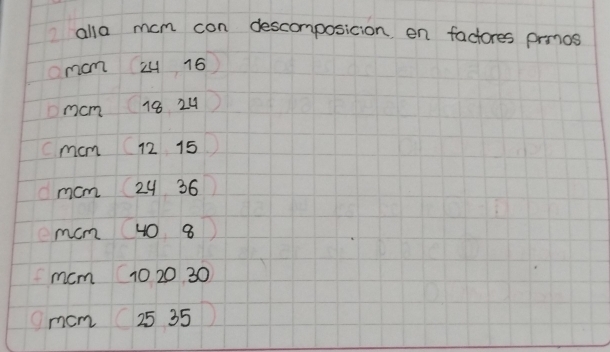 2 alla mcm con descomposición en factores primos
a mcm (24, 16)
b mcm (18, 24)
c mcm (12, 15)
d mcm (24, 36)
e mcm (40, 8)
f mcm (10, 20, 30)
g mcm (25, 35)